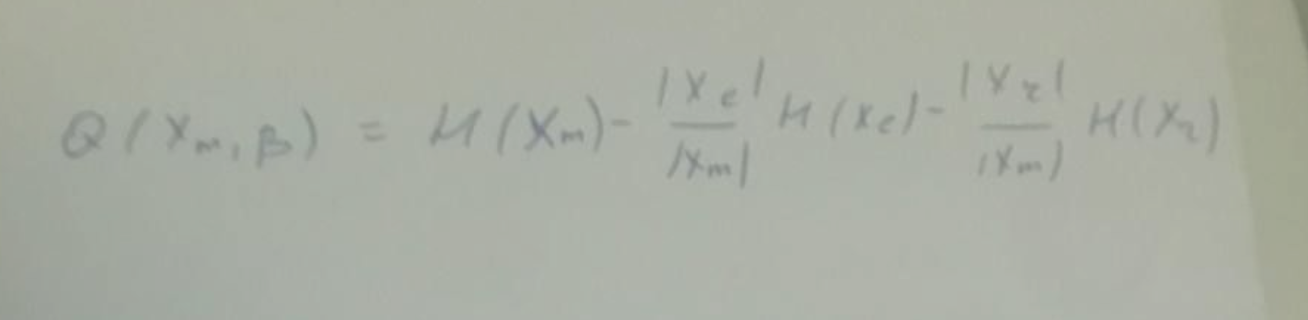 Q(X_m, β) = H(X_m) - \frac{|X_e|}{|X_m|} H(X_e) - \frac{|X_r|}{|X_m|} H(X_r)